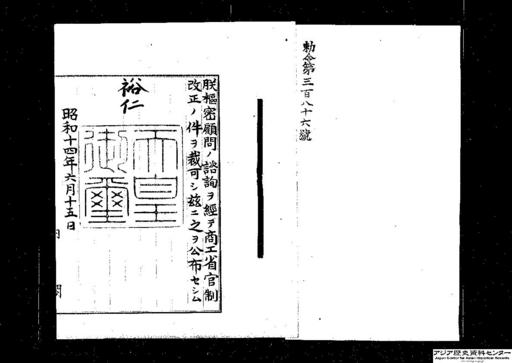 勅令第三百八十六號
朕樞密顧問ノ諮詢ヲ經テ商工省官制
改正ノ件ヲ裁可シ茲ニ之ヲ公布セシム
裕仁
天皇
御璽
昭和十四年六月十五日
アジア歴史資料センター
Japan Center for Asian Historical Records